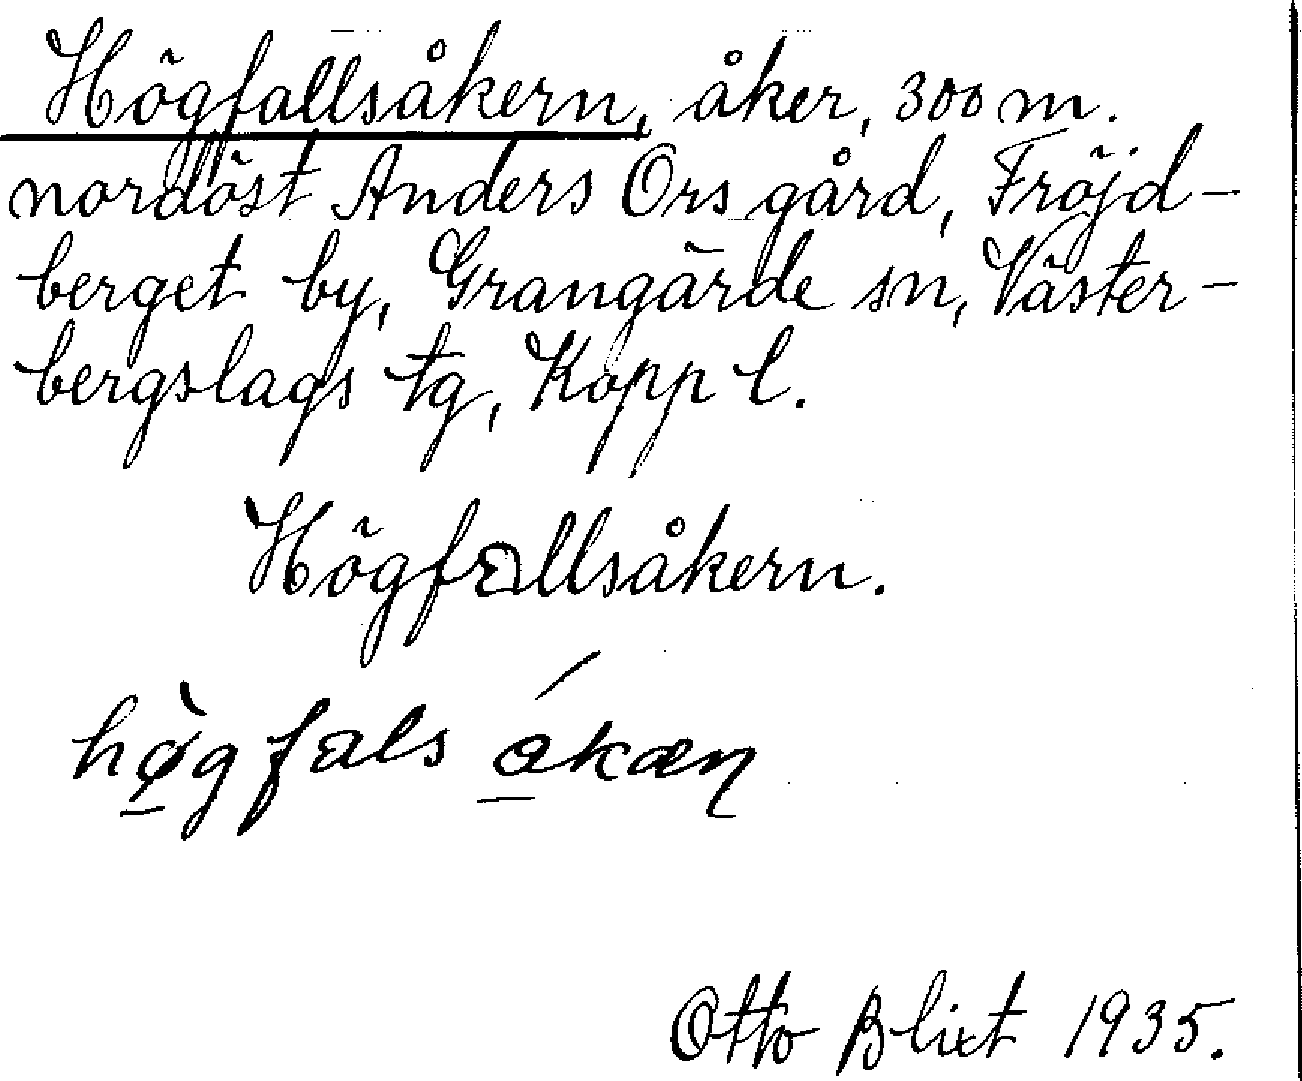 Högfallsåkern, åker, 300 m.
nordöst Anders Ors gård, Fröjd-
berget by, Grangärde sn, Väster-
bergslags tg, Kopp l.
Högfallsåkern.
hø̀gfals ákæn
Otto Blixt 1935.